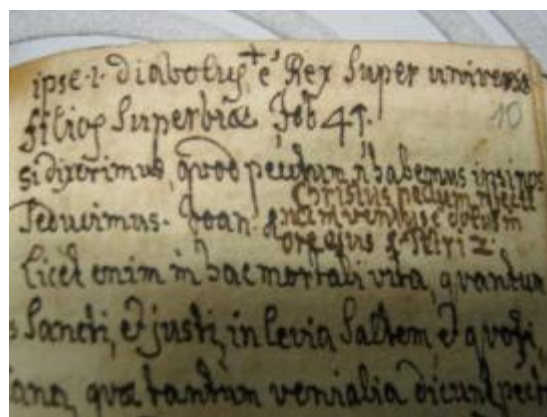 ipse .i. diabolus, + ē Rex super universos
filios superbiæ Job 41.
10
si dixerimus, quod pecctum ñ habemus ipsi nos
seducimus. Joan.
Christus pectum
ore ejus S. Petri 2.
licet enim in hac mortali vita, quantum
Sancti, et justi, in levia saltem et quoti
quæ tantum venialia dicunt pect